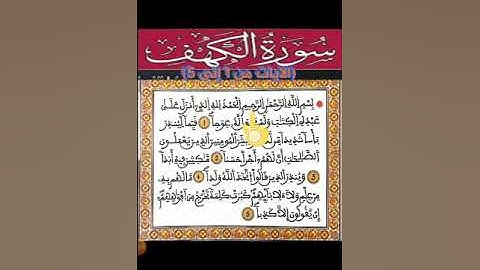 سورة الكهف
(الآيات من 1 إلى 5)
بِسْمِ اللَّهِ الرَّحْمَٰنِ الرَّحِيمِ الْحَمْدُ لِلَّهِ الَّذِي أَنزَلَ عَلَىٰ
عَبْدِهِ الْكِتَابَ وَلَمْ يَجْعَل لَّهُ عِوَجًا 1 قَيِّمًا لِّيُنذِرَ
بَأْسًا شَدِيدًا مِّن وَيُبَشِّرَ الْمُؤْمِنِينَ الَّذِينَ يَعْمَلُونَ
الصَّالِحَاتِ أَنَّ لَهُمْ أَجْرًا حَسَنًا 2 مَّاكِثِينَ فِيهِ أَبَدًا
3 وَيُنذِرَ الَّذِينَ قَالُوا اتَّخَذَ اللَّهُ وَلَدًا 4 مَّا لَهُم بِهِ
مِنْ عِلْمٍ وَلَا لِآبَائِهِمْ كَبُرَتْ كَلِمَةً تَخْرُجُ مِنْ أَفْوَاهِهِمْ
إِن يَقُولُونَ إِلَّا كَذِبًا 5